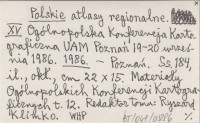 Polskie atlasy regionalne.
XV Ogólnopolska Konferencja Karto
graficzna UAM Poznań 19-20 wrześ
nia 1986. 1986. - Poznań. Ss, 184,
il., okł., cm 22 x 15. Materiały
Ogólnopolskich Konferencji Kartogra
ficznych t. 12. Redaktor tomu: Ryszard
Klimko. WHP